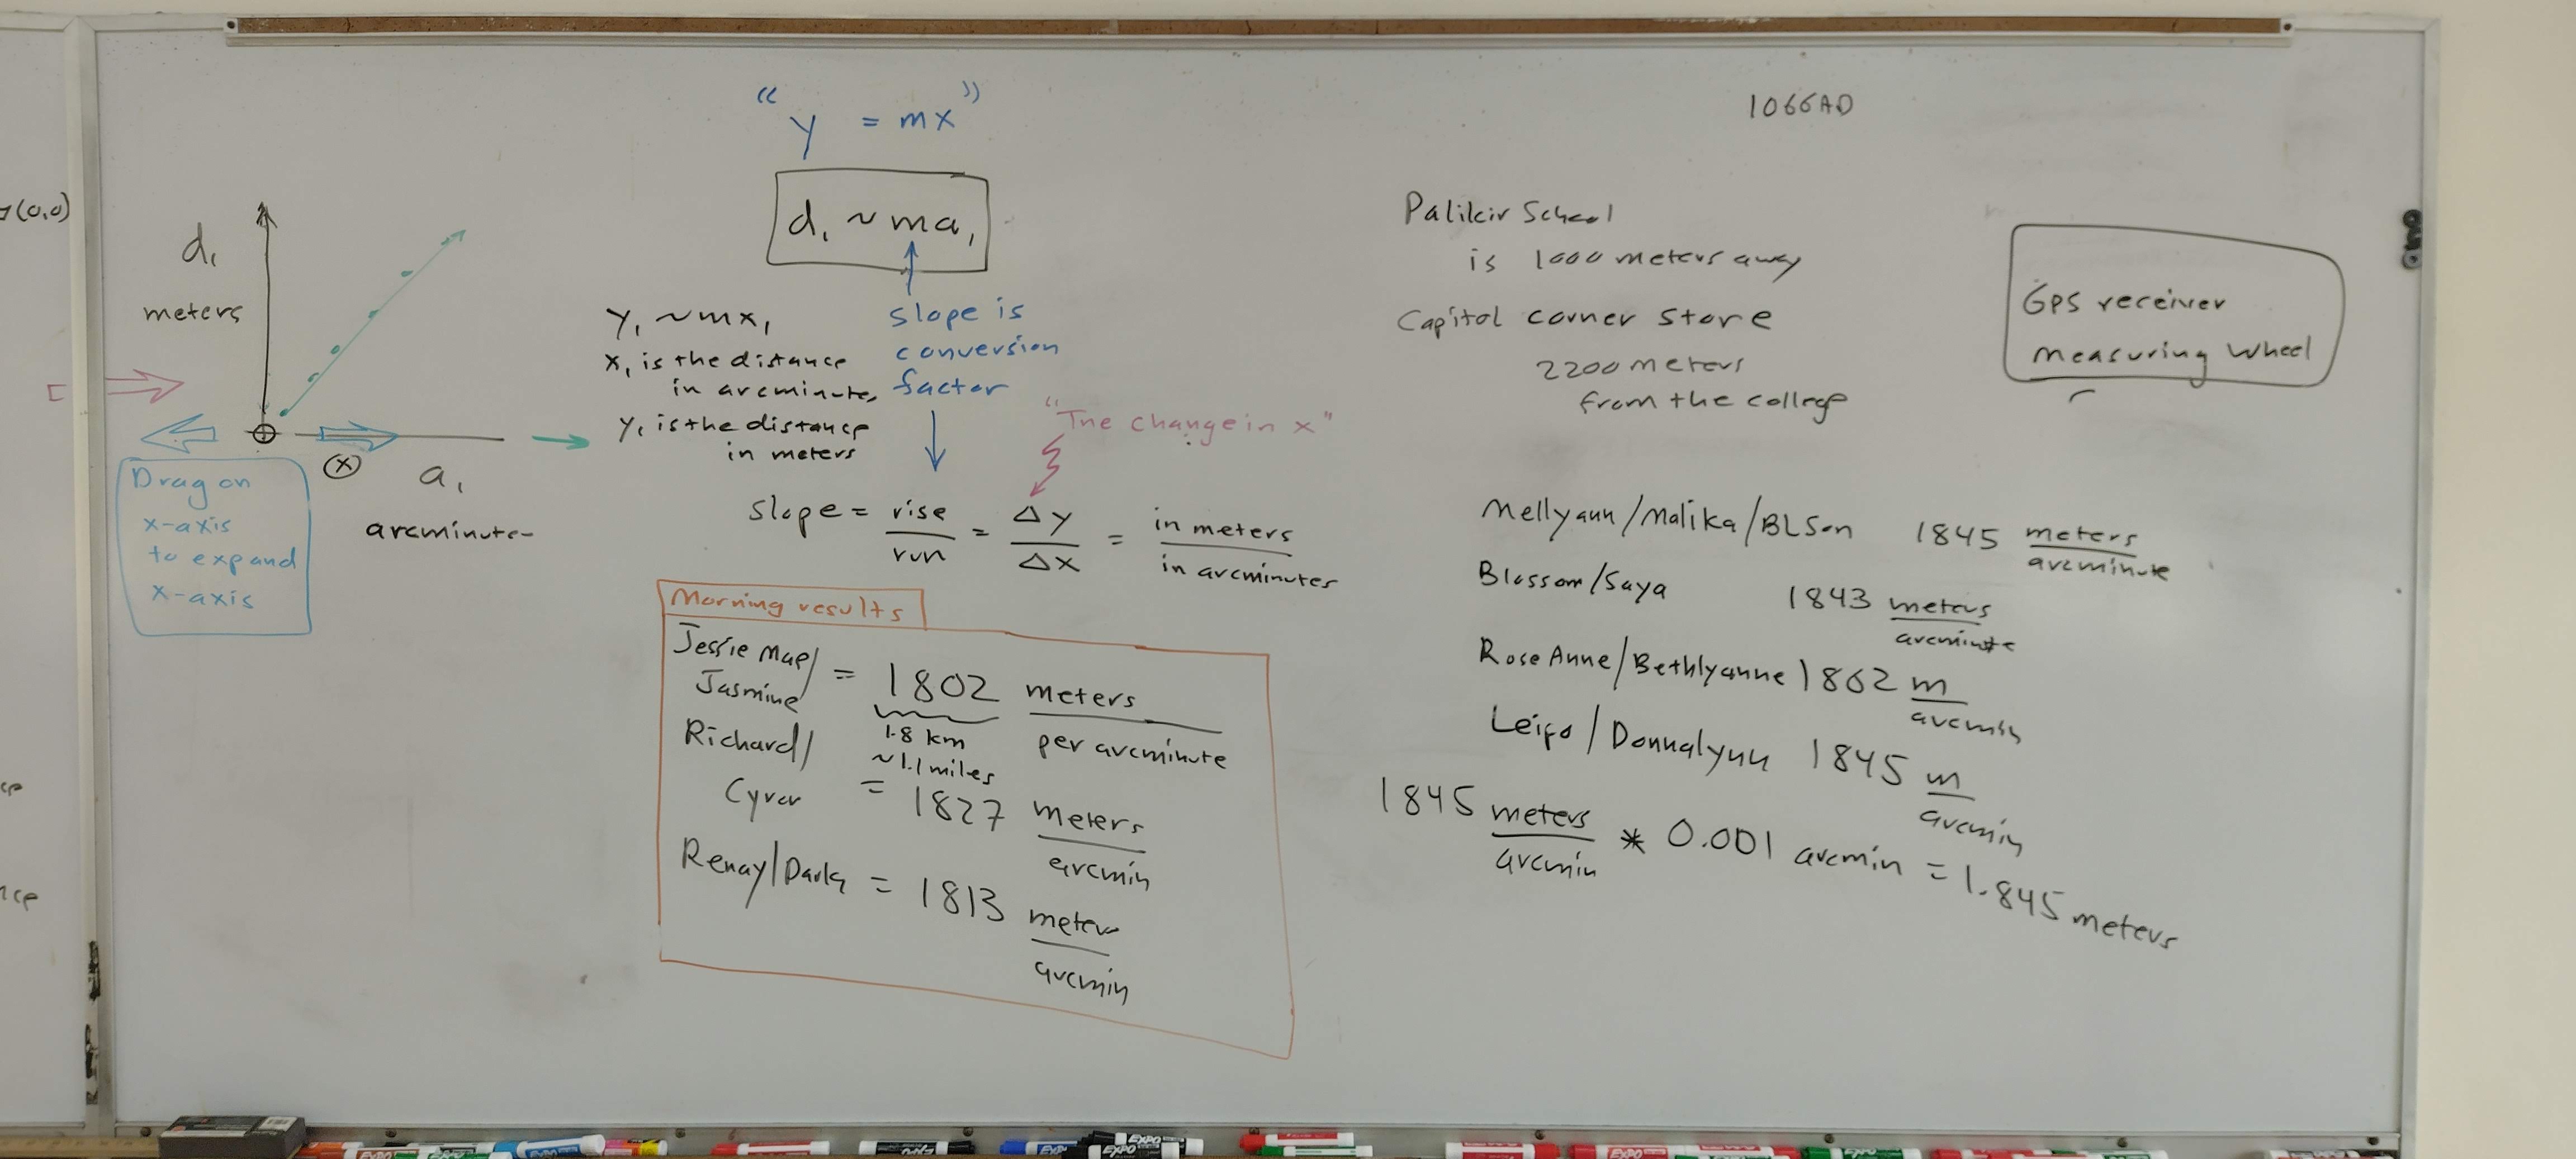 (0,0)
d₁
meters
a₁
arcminute
(x)
Drag on
x-axis
to expand
x-axis
"y = mx"
d₁ ~ ma₁
y₁ ~ mx₁
x₁ is the distance
in arcminutes
y₁ is the distance
in meters
slope is
conversion
factor
"The change in x"
slope = rise/run = Δy/Δx = in meters/in arcminutes
Morning results
Jessie Mae/
Jasmine = 1802 meters/per arcminute
1.8 km
~1.1 miles
Richard/
Cyrer = 1827 meters/arcmin
Renay/Darla = 1813 meter/arcmin
1066AD
Palikir School
is 1000 meters away
Capitol corner store
2200 meters
from the college
GPS receiver
measuring wheel
Mellyann/Malika/BLSon 1845 meters/arcminute
Blossom/Saya 1843 meters/arcminute
Rose Anne/Bethlyanne 1862 m/arcmin
Leigo/Donnalynn 1845 m/arcmin
1845 meters/arcmin * 0.001 arcmin = 1.845 meters
EXPO
EXPO
EXPO
EXPO
EXPO
EXPO